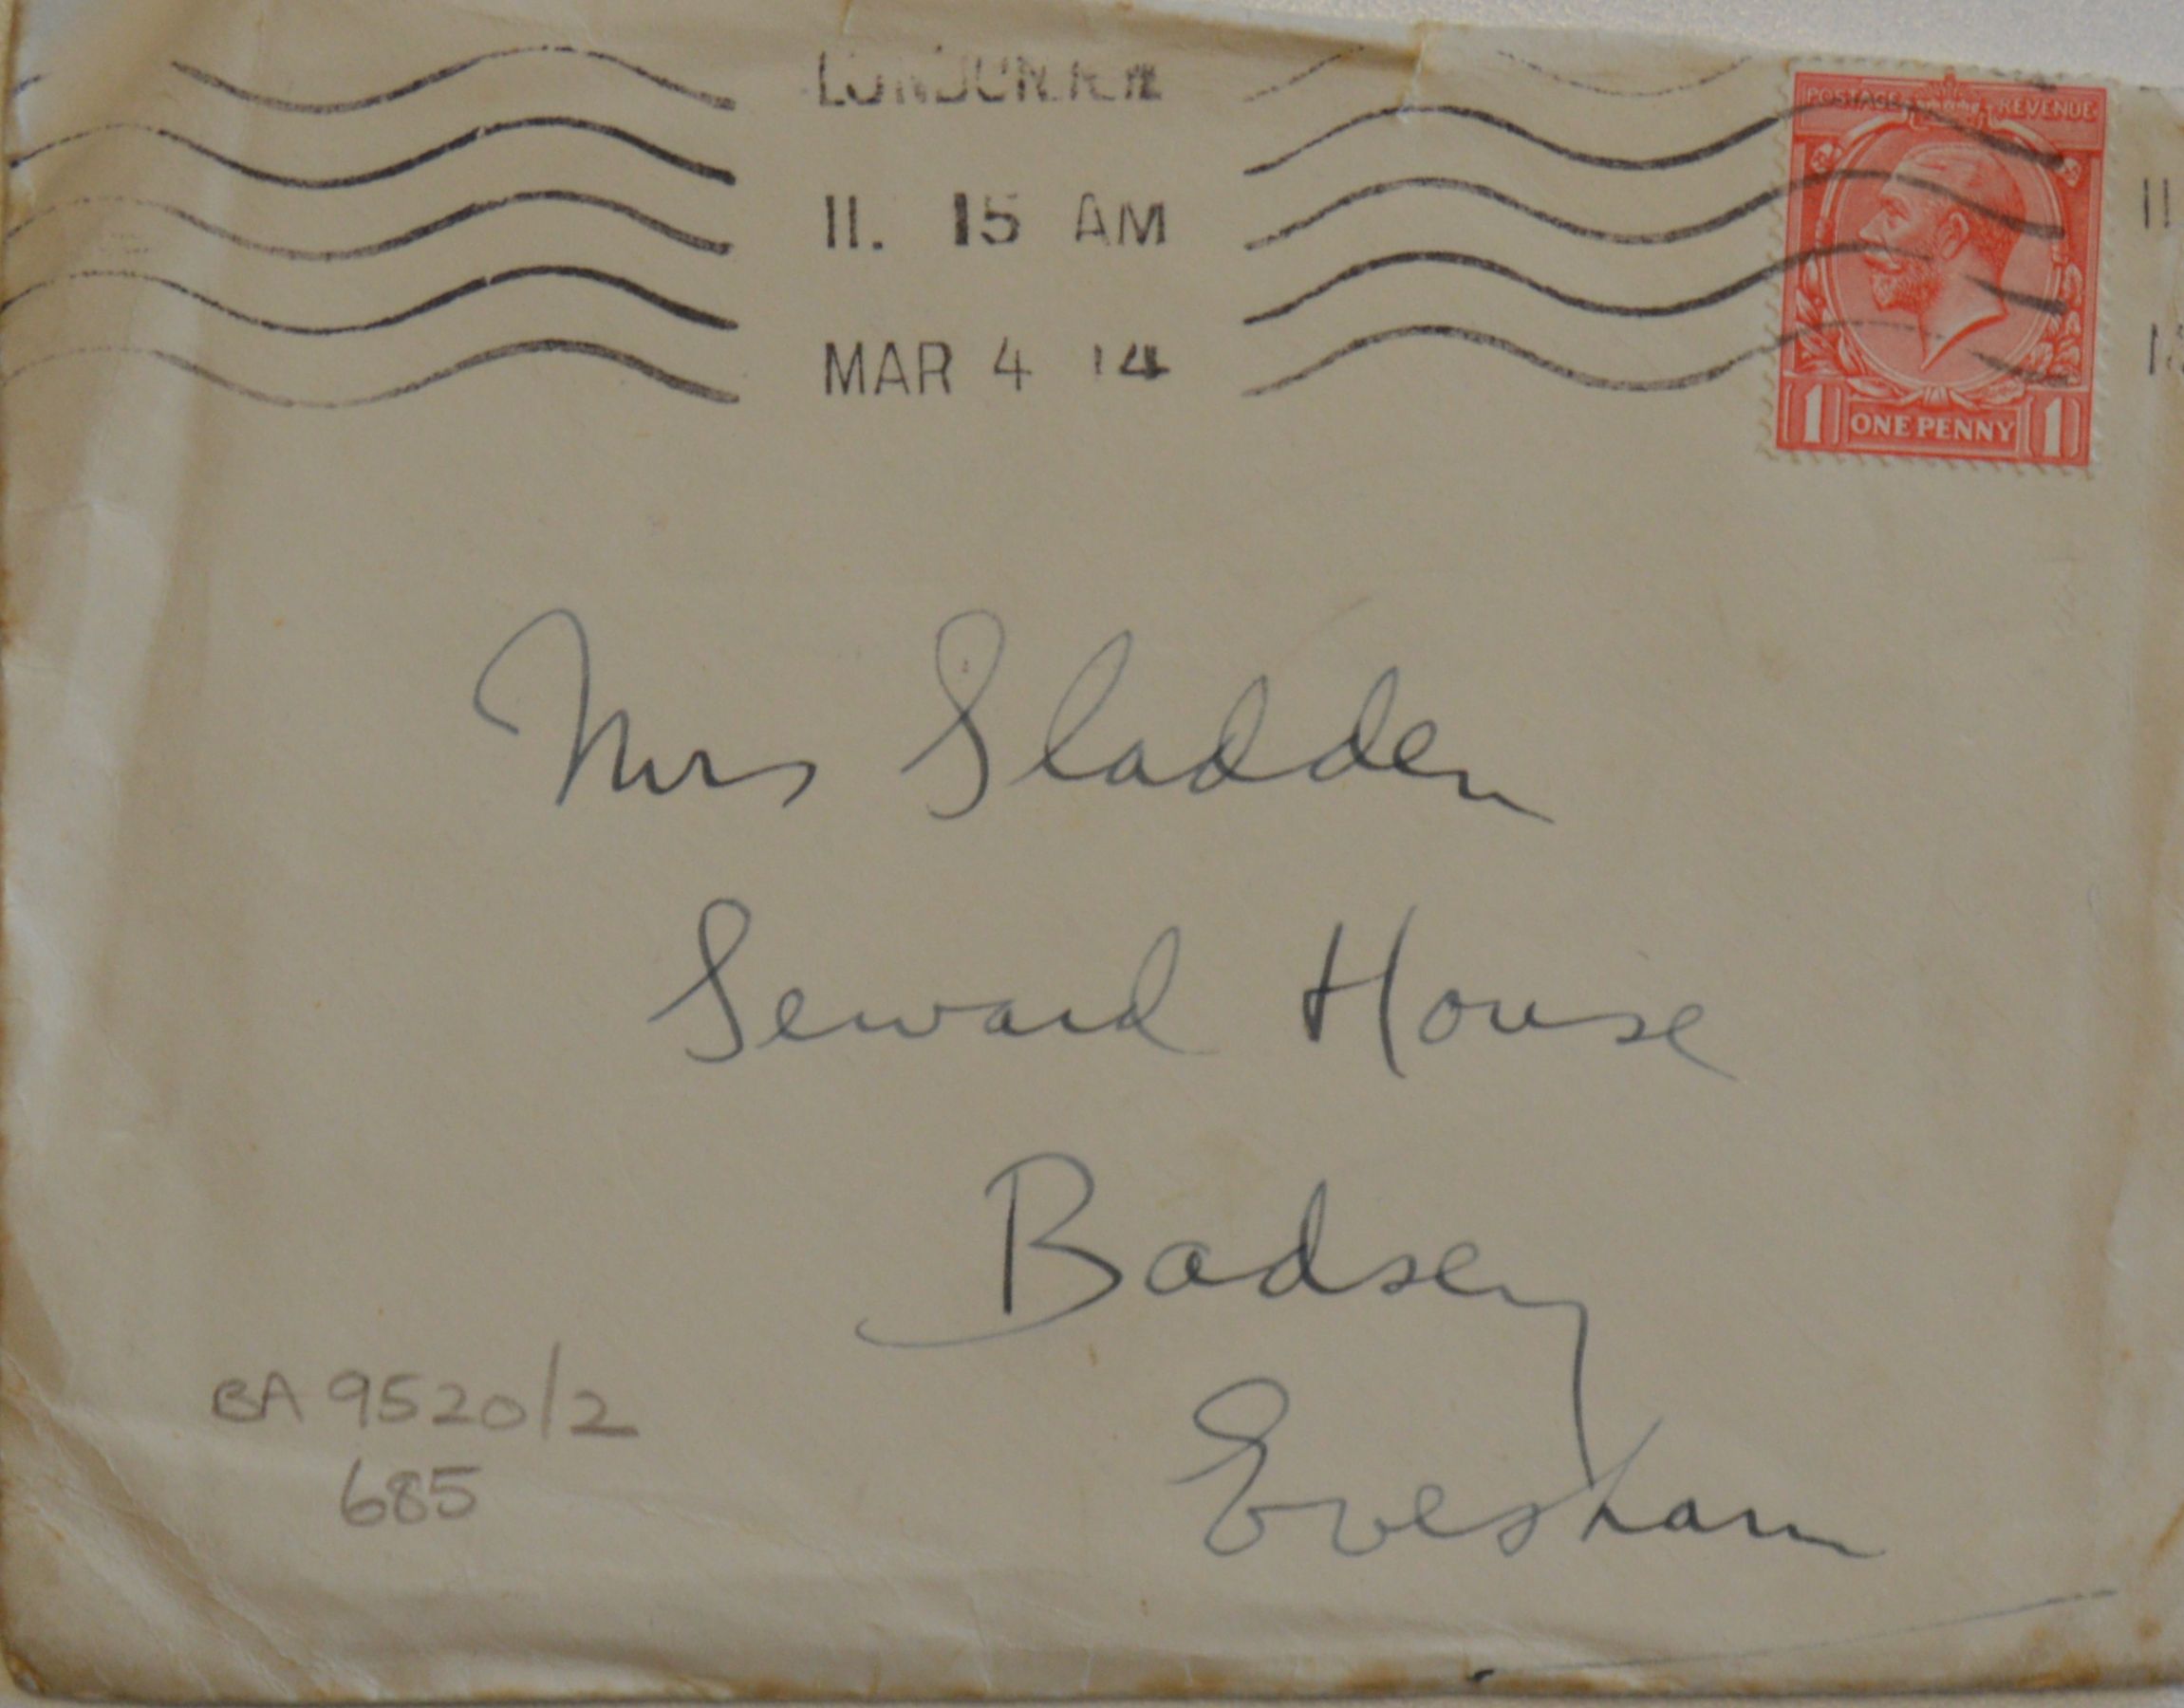 LONDON. N.W.
11. 15 AM
MAR 4 14
POSTAGE REVENUE
1 ONE PENNY 1
11
Mrs Sladden
Seward House
Badsey
Evesham
BA 9520/2
685